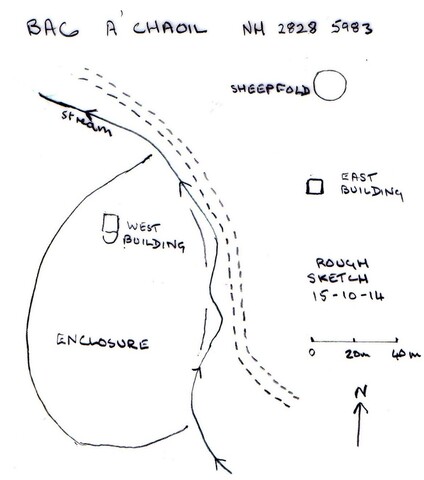 BAC A' CHAOIL NH 2828 5983
SHEEPFOLD
stream
EAST
BUILDING
WEST
BUILDING
ROUGH
SKETCH
15-10-14
ENCLOSURE
0 20m 40m
N